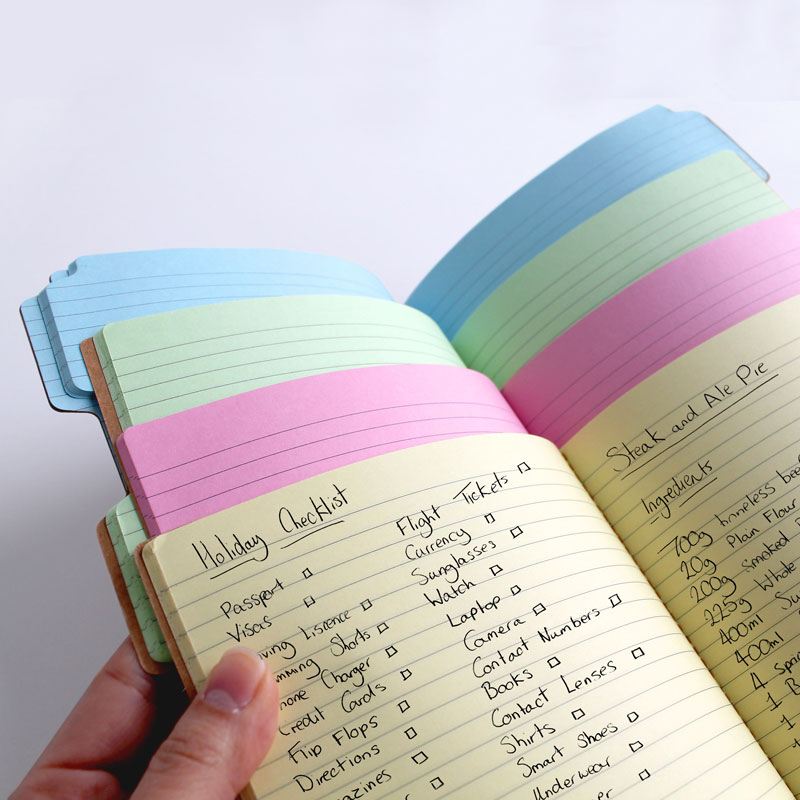 Holiday Checklist
Passport
Visas
iving Lisence
mming Shorts
hone Charger
Credit Cards
Flip Flops
Directions
azines
Flight Tickets
Currency
Sunglasses
Watch
Laptop
Camera
Contact Numbers
Books
Contact Lenses
Shirts
Smart Shoes
Underwear
Steak and Ale Pie
Ingredients
700g boneless bee
20g Plain Flour
200g Smoked
225g Whole
400ml
400ml
4
1
1